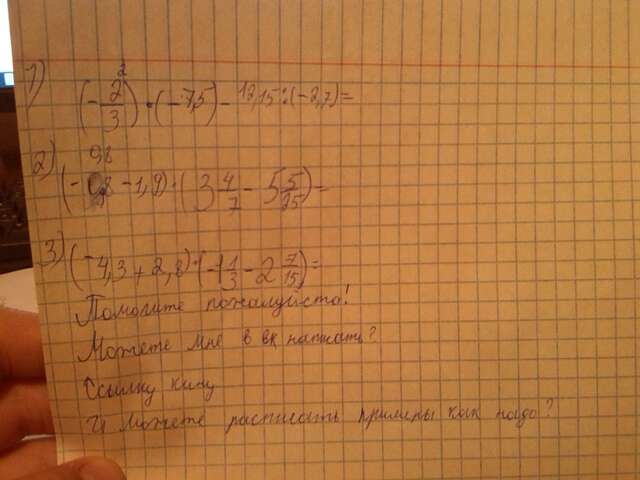 1) (-2/3) · (-7,5) - 12,15 : (-2,7) =
0,8
2) (- 0,8 - 1,9) · (3 4/7 - 5 5/25) =
3) (-4,3 + 2,8) · (-1 1/3 - 2 7/15) =
Помогите пожалуйста!
Можете мне в вк написать?
Ссылку кину
И можете расписать примеры как надо?